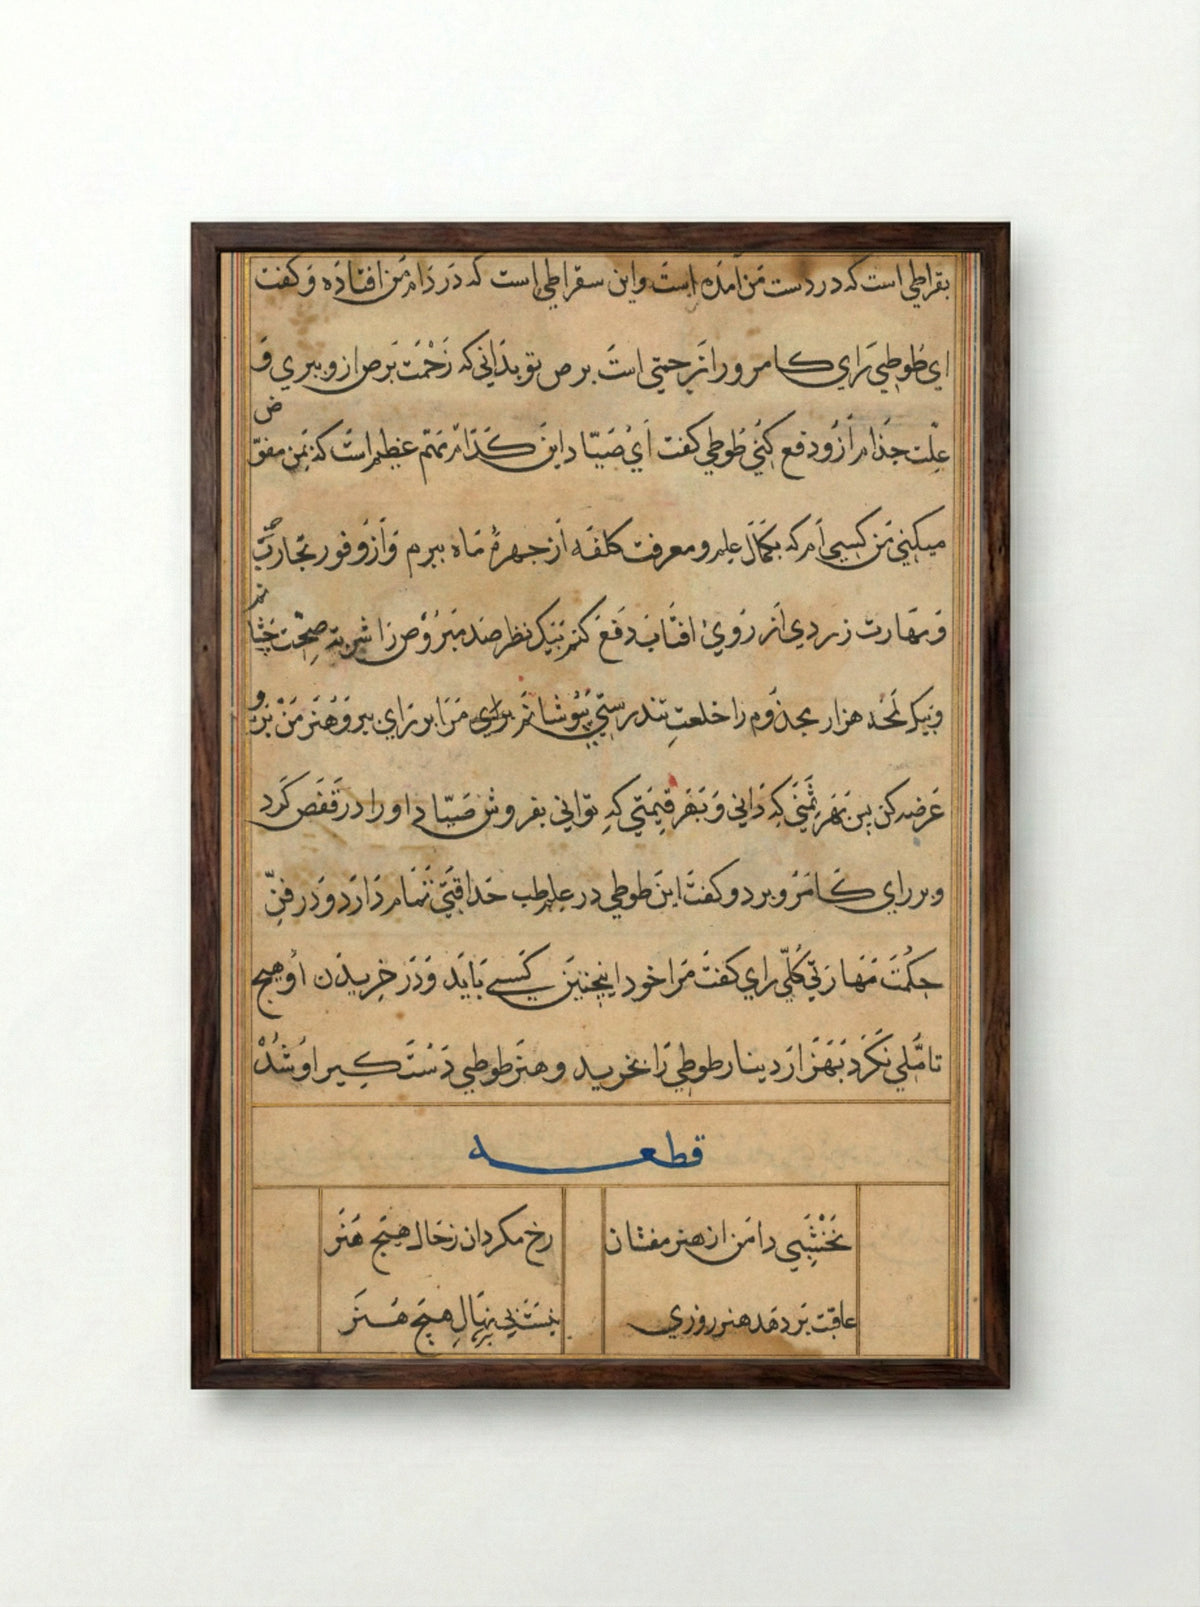 بقراطی است که در دست من آمده است و این سقراطی است که در دام من افتاده و گفت
ای طوطی رای کامرو را زحمتی است برص تو بدانی که زحمت برص ازو ببری و
علت جذام ازو دفع کنی طوطی گفت ای صیاد این کدام مهم عظیم است که بمن مفوض
میکنی من کسی ام که بکمال علم و معرفت کلفه از چهرهٔ ماه ببرم و از وفور تجارب
و مهارت زردی از روی افتاب دفع کنم بیک نظر صد مبروص را شربت صحت چشانم
و بیک لمحه هزار مجذوم را خلعت تندرستی پوشانم مرا بر رای ببر و هنر من برو
عرضه کن پس بهر ثمنی که دانی و بهر قیمتی که توانی بفروش صیاد او را در قفص کرد
و بر رای کامرو برد و گفت این طوطی در علم طب حذاقتی تمام دارد و در فن
حکمت مهارتی کلی رای گفت مرا خود اینچنین کسی باید و در خریدن او هیچ
تاملی نکرد بهزار دینار طوطی را بخرید و هنر طوطی دست گیر او شد
قطعه
نخشبی دامن از هنر مفشان رخ مگردان ز حال هیچ هنر
عاقبت بر دهد هنر روزی نیست بی نهال هیچ هنر